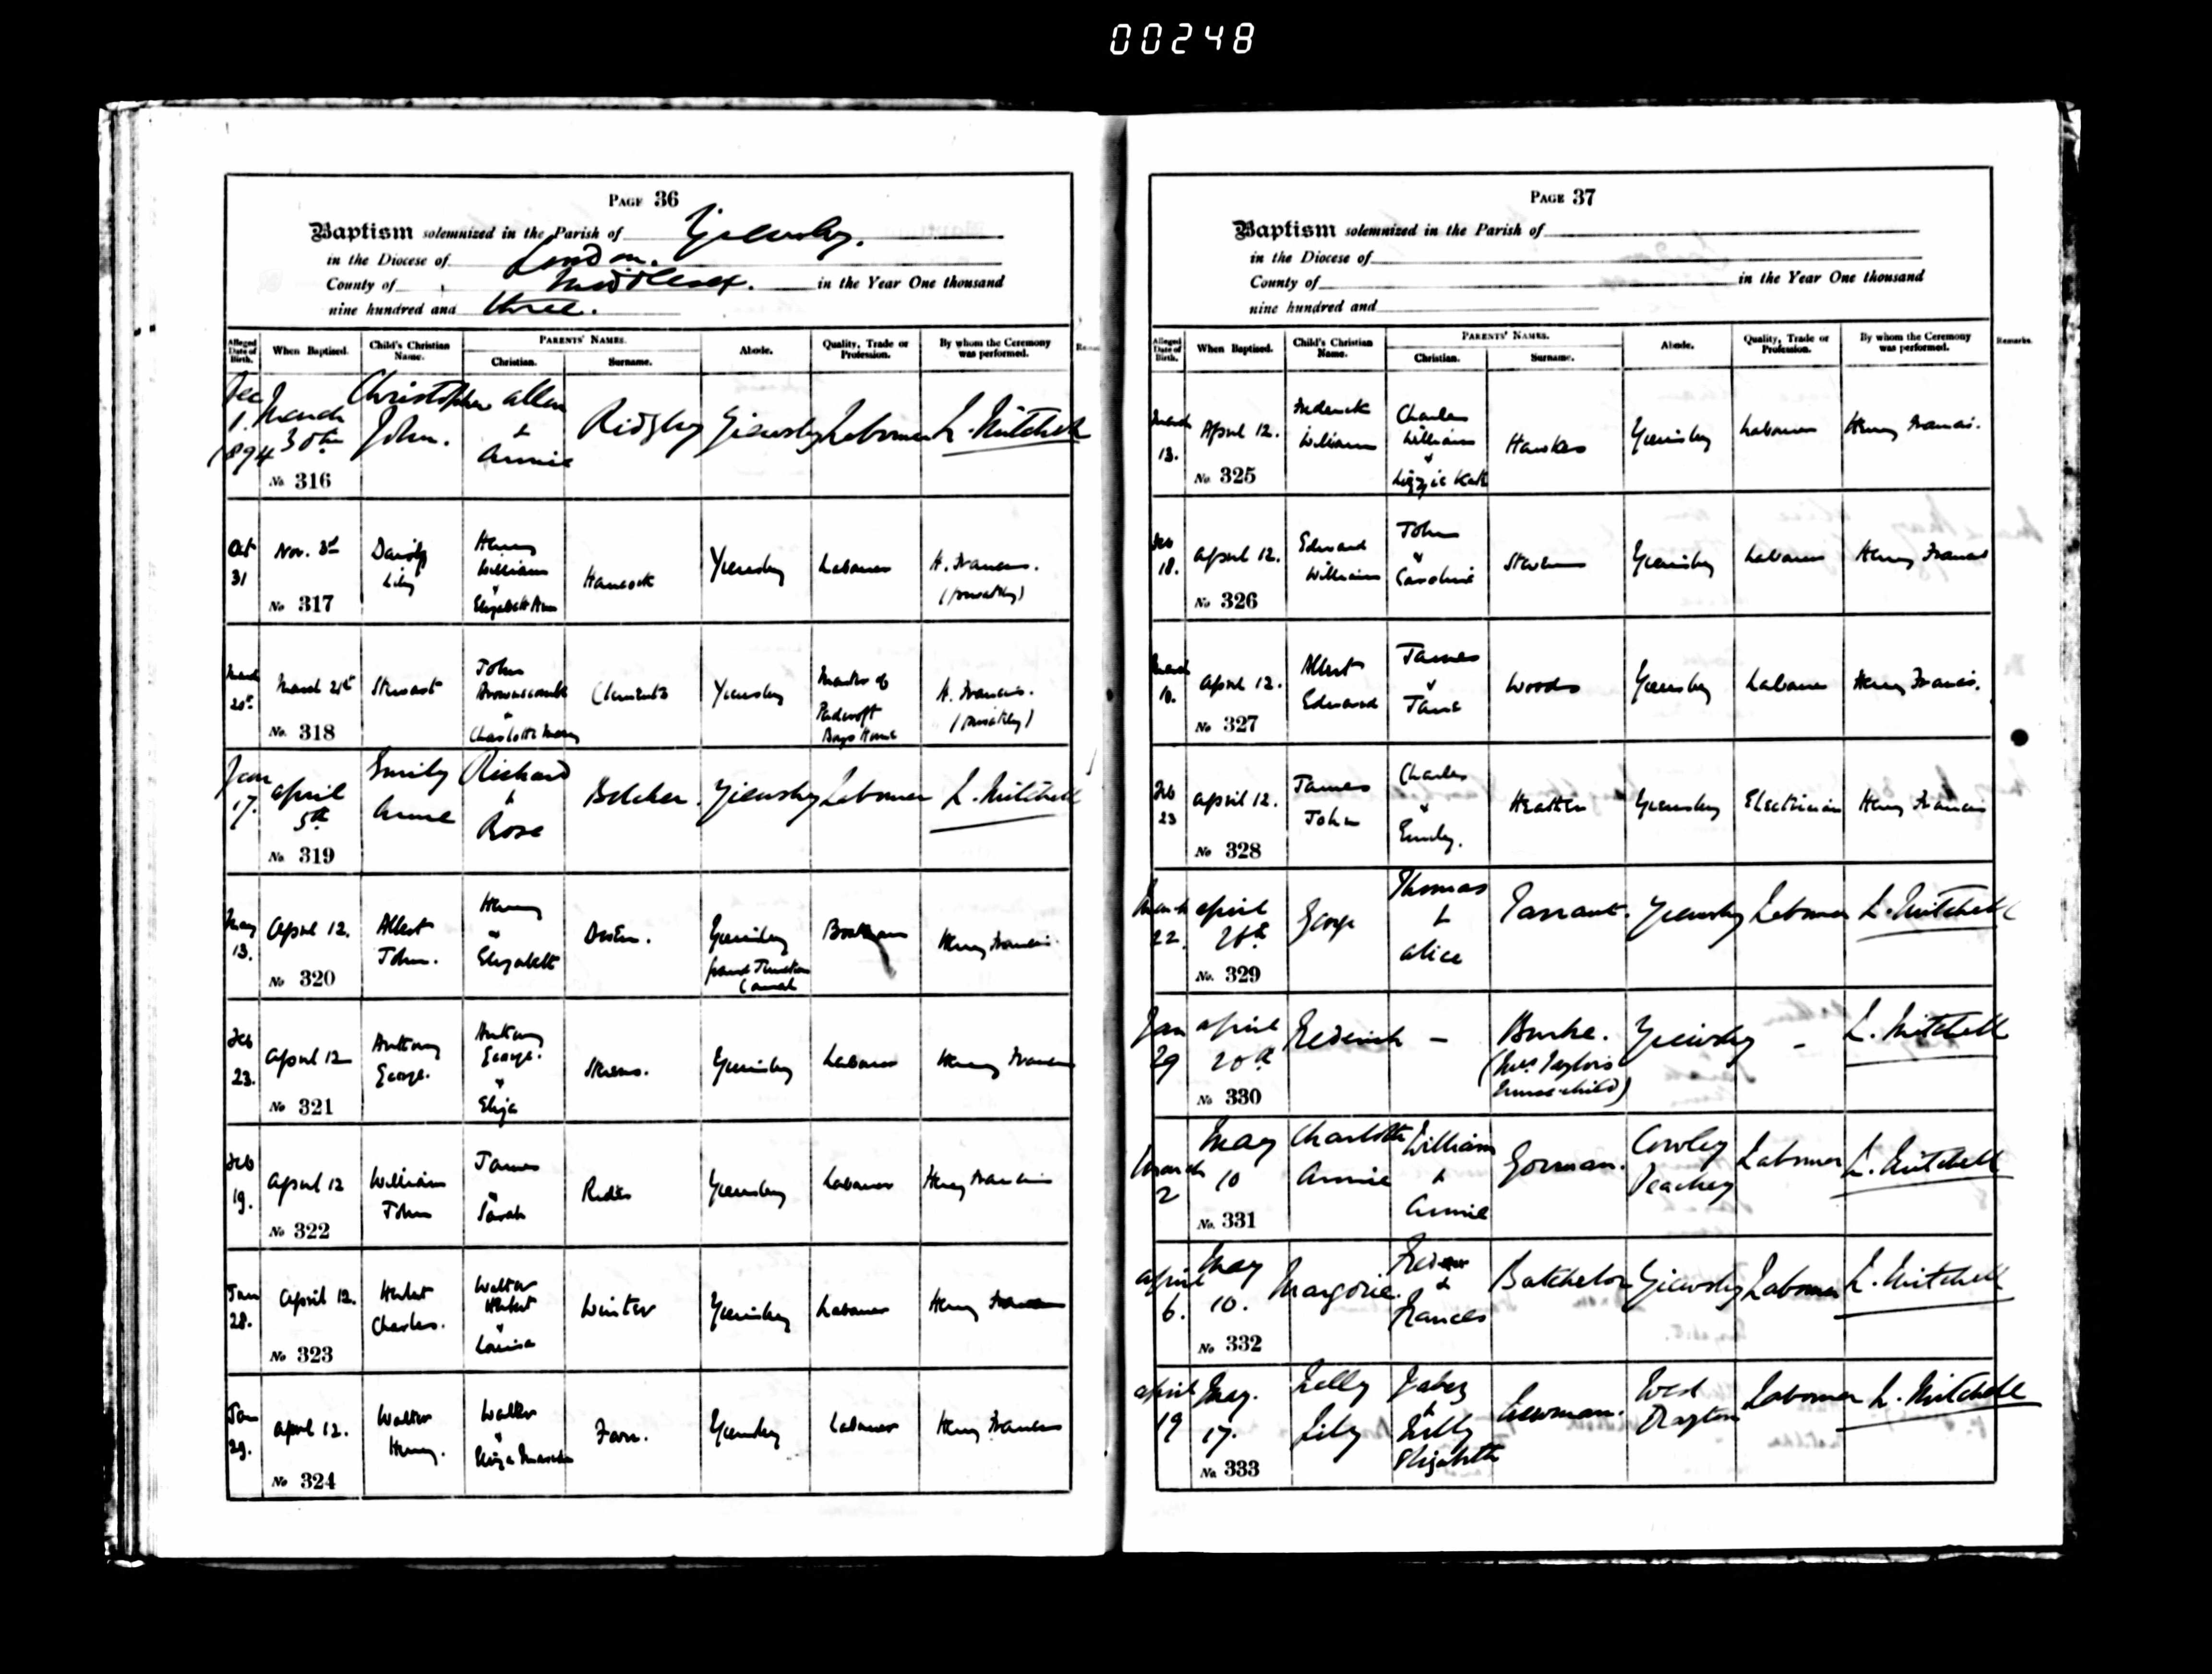 00248
PAGE 36
Baptism solemnized in the Parish of Yiewsley.
in the Diocese of London.
County of Middlesex. in the Year One thousand
nine hundred and three.
Alleged Date of Birth. When Baptized. Child's Christian Name. PARENTS' NAMES. Christian. Surname. Abode. Quality, Trade or Profession. By whom the Ceremony was performed.
Dec 1. 1894 March 30th Christopher John. Allen & Annie Ridgley Yiewsley Labourer L. Mitchell
No. 316
Oct 31 Nov. 3rd Lily Henry William & Elizabeth Ann Hancock Yiewsley Labourer H. Francis. (privately)
No 317
March March 21st Stewart John & Charlotte Mary Clements Yiewsley Master of Padcroft Boys Home H. Francis. (privately)
No. 318
Jan 17. April 5th Emily Annie Richard & Rose Belcher. Yiewsley Labourer L. Mitchell
No. 319
May 13. April 12. Albert John. Henry & Elizabeth Yiewsley Grand Junction Canal Boatman Henry Francis
No 320
Feb 23. April 12 Anthony George. Anthony George. & Eliza Stevens. Yiewsley Labourer Henry Francis
No 321
Feb 19. April 12 William John James & Sarah Yiewsley Labourer Henry Francis
No 322
Jan 28. April 12. Herbert Charles. Walter Herbert & Louisa Winter Yiewsley Labourer Henry Francis
No 323
Jan 29. April 12. Walter Henry. Walter & Eliza Farr. Yiewsley Labourer Henry Francis
No 324
PAGE 37
Baptism solemnized in the Parish of
in the Diocese of
County of in the Year One thousand
nine hundred and
Alleged Date of Birth. When Baptised. Child's Christian Name. PARENTS' NAMES. Christian. Surname. Abode. Quality, Trade or Profession. By whom the Ceremony was performed. Remarks.
March 13. April 12. Frederick William Charles William & Lizzie Kate Hawkes Yiewsley Labourer Henry Francis.
No 325
Feb 18. April 12. Edward William John & Caroline Stevens Yiewsley Labourer Henry Francis
No 326
March 10. April 12. Albert Edward James & Jane Woods Yiewsley Labourer Henry Francis.
No 327
Feb 23 April 12. James John Charles & Emily. Heather Yiewsley Electrician Henry Francis
No 328
March 22. April 26th George Thomas & Alice Tarrant. Yiewsley Labourer L. Mitchell
No. 329
Jan 29 April 20th Frederick - Burke. (Mrs Taylor's nurse-child) Yiewsley - L. Mitchell
No 330
March 2 May 10 Charlotte Annie William & Annie Gorman. Cowley Peachey Labourer L. Mitchell
No. 331
April 6. May 10. Margorie. Fred & Frances Batchelor Yiewsley Labourer L. Mitchell
No 332
April 19 May. 17. Lilly Jabez & Lilly Elizabeth Newman. West Drayton Labourer L. Mitchell
No. 333